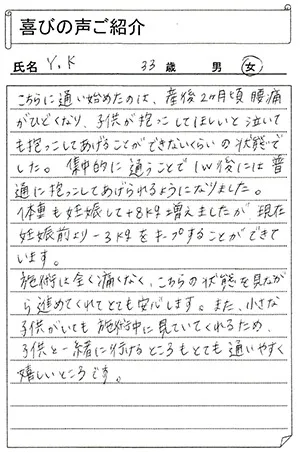 喜びの声ご紹介
氏名 Y.K 33歳 男 女
こちらに通い始めたのは、産後2ヶ月頃 腰痛
がひどくなり、子供が抱っこしてほしいと泣いて
も抱っこしてあげることができないくらいの状態で
した。 集中的に通うことで1W後には普
通に抱っこしてあげられるようになりました。
体重も妊娠して+8kg増えましたが現在
妊娠前より-3kgをキープすることができて
います。
施術は全く痛くなく、こちらの状態を見なが
ら進めてくれてとても安心します。また、小さな
子供がいても施術中に見ていてくれるため、
子供と一緒に行けるところもとても通いやすく
嬉しいところです。